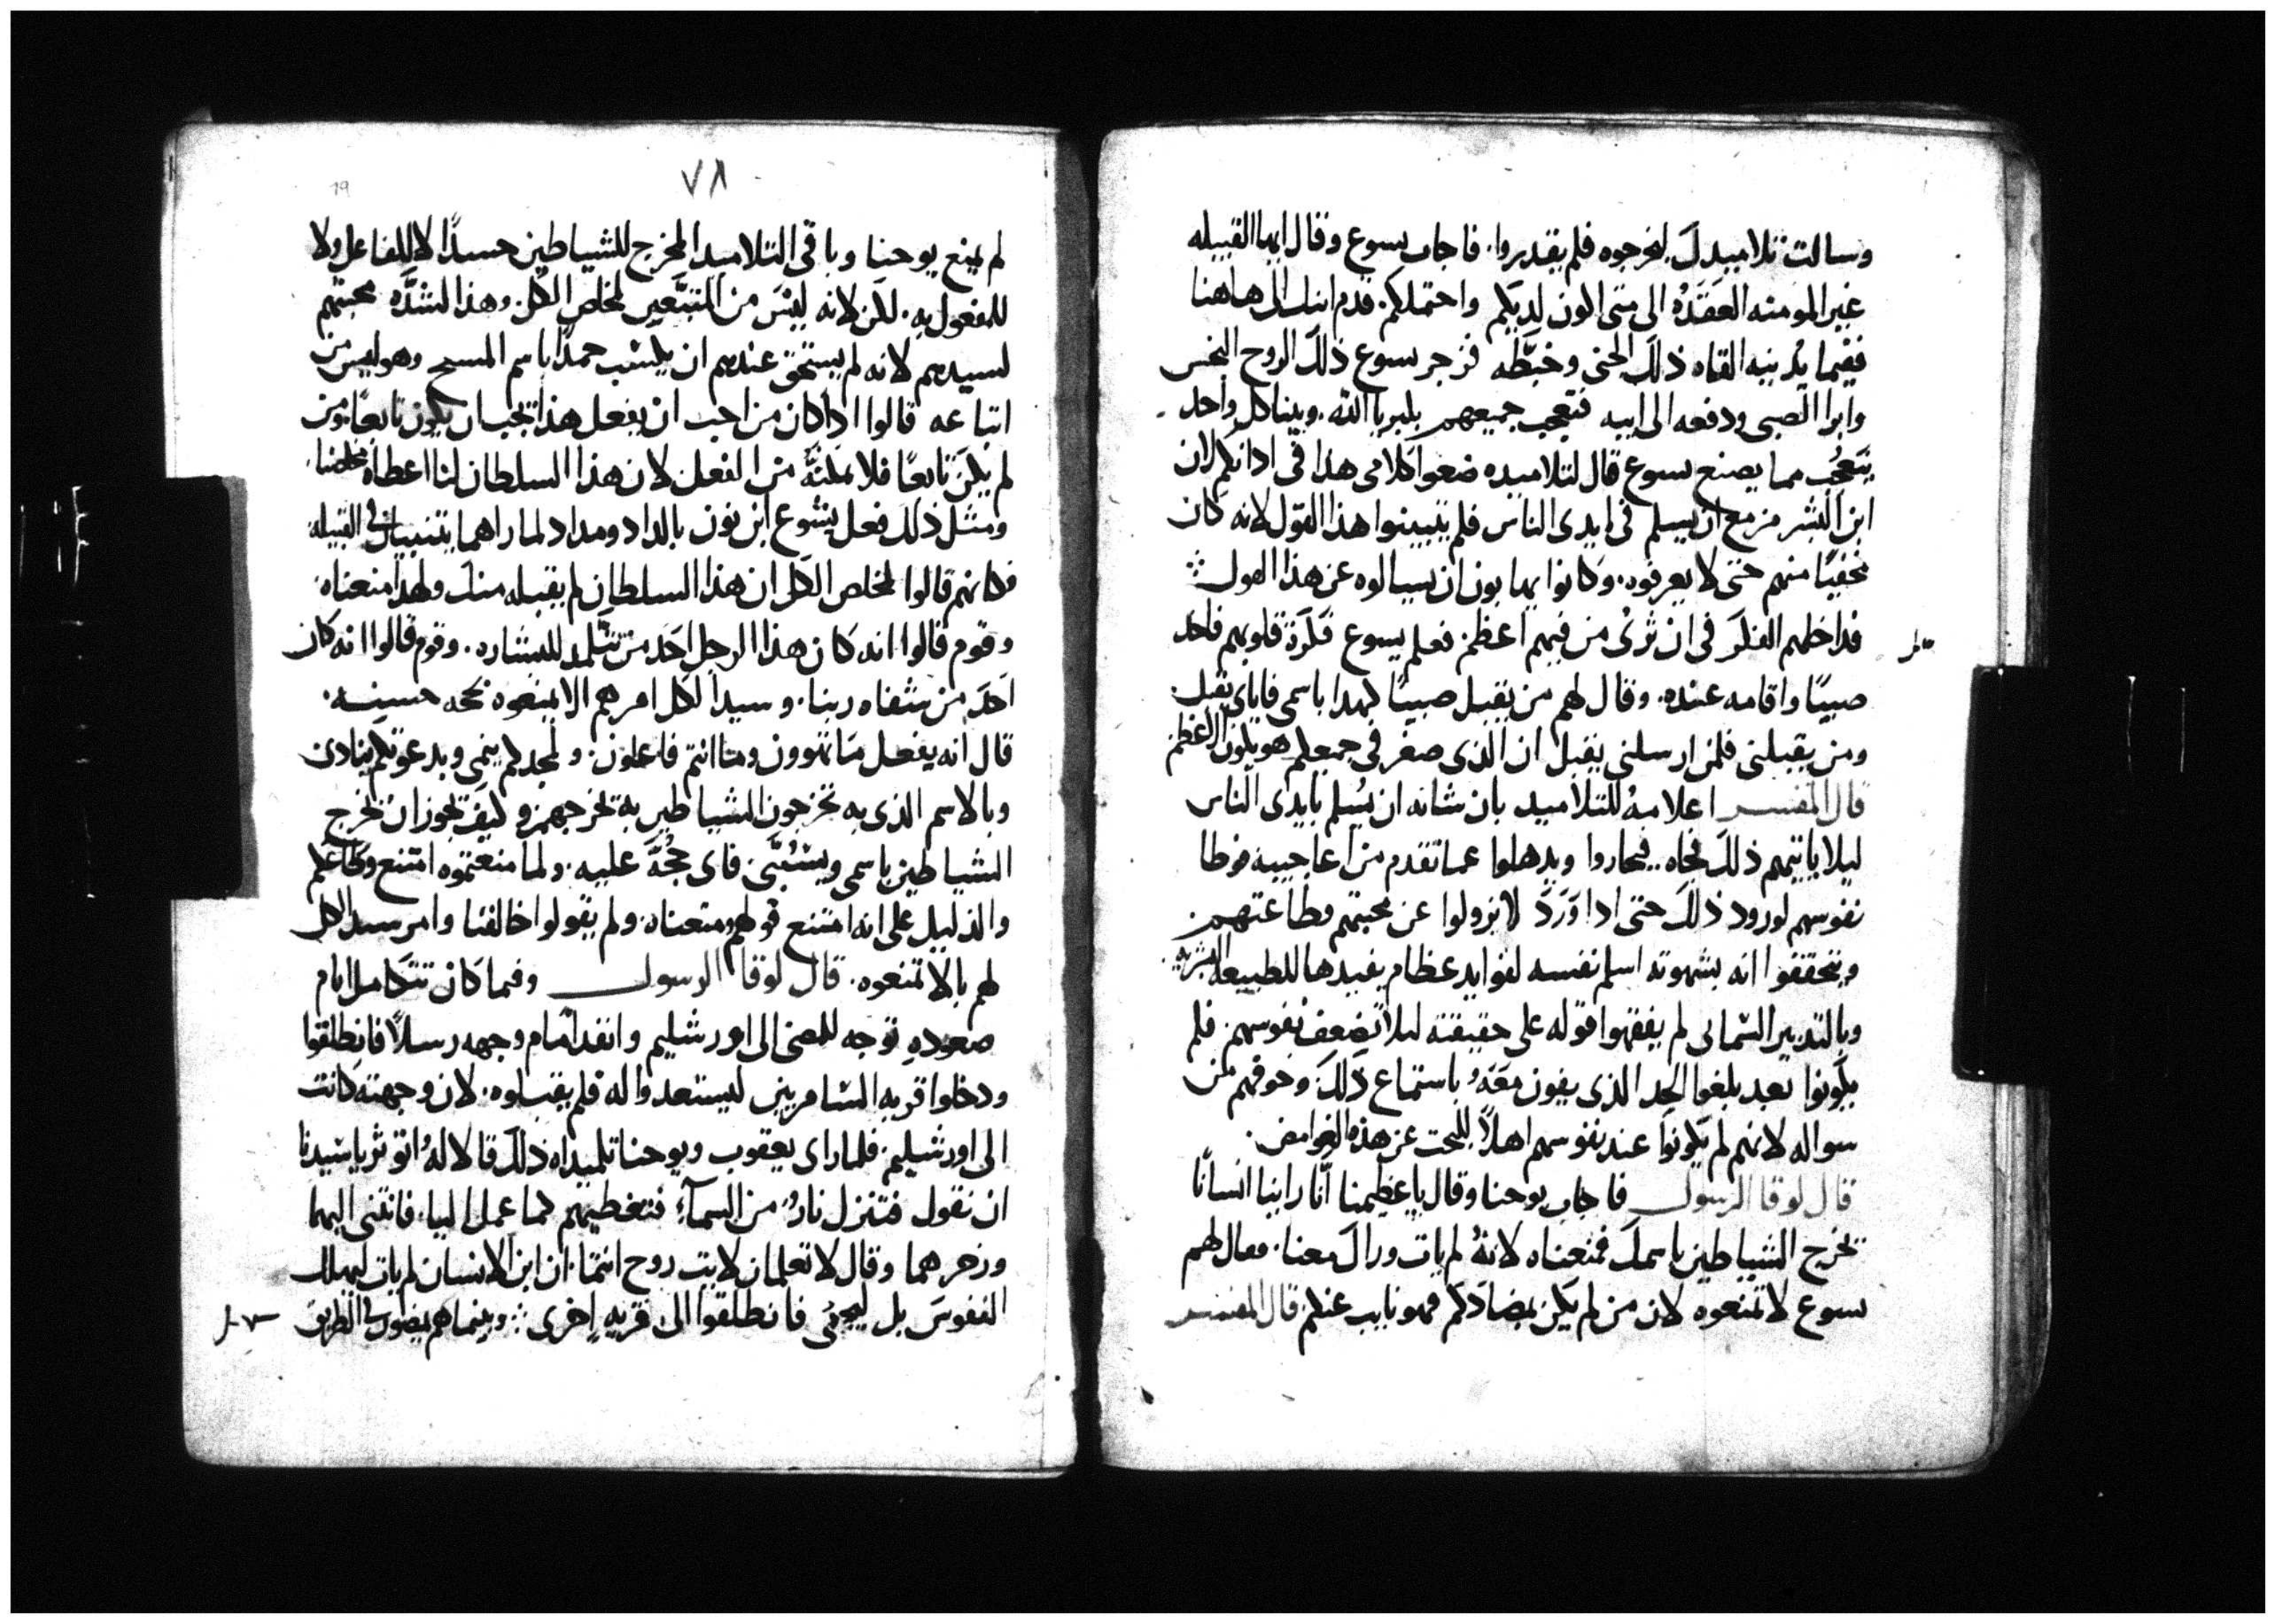 وسالت تلاميدك ليخرجوه فلم يقدروا. فاجاب يسوع وقال ايها القبيله
غير المومنه العَقَدَهْ الى متى اكون لديكم واحتملكم. قدم ابنك الى هاهنا
ففيما يُدنيه القاه ذلك الجني وخبَّطه فزجر يسوع ذلك الروح النجس
وابرا الصبي ودفعه الى ابيه فتعجب جميعهم بكبريا الله. وبينا كل واحد
يتعجُب مما يصنع يسوع قال لتلاميده ضعوا كلامي هدا في ادانكم لان
ابن البشر مزمع ان يسلم في ايدي الناس فلم يتبينوا هذا القول لانه كان
مخفيًا منهم حتى لا يعرفوه. وكانوا يهابون ان يسالوه عن هذا القول
فداخلهم الفكر في ان تُرى من فيهم اعظم. فعلم يسوع فكرة قلوبهم فاخد
صبيًا واقامه عنده. وقال لهم من يقبل صبيًا كهدا باسمي فاياي يقبل
ومن يقبلني فلمن ارسلني يقبل ان الذي صغر في جمعكم هو يكون الاعظم
قال المفسر اعلامهُ للتلاميد بان شانه ان يُسلم بايدي الناس
ليلا ياتيهم ذلك فجاه. فيحاروا ويدهلوا عما تقدم من اعاجيبه فوطا
نفوسهم لورود ذلك حتى ادا وَرَدَ لا يزولوا عن محبتهم وطاعتهم
ويتحققوا انه بشهوته اسلم نفسه لفوايد عظام يفيدها للطبيعه البشريه.
وبالتدبير السماى لم يفقهوا قوله على حقيقته ليلا تضعف نفوسهم. فلم
يكونوا بعد بلغوا الحد الذي يفون معَهُ باستماع ذلك. وخوفهم من
سواله لانهم لم يكونوا عند نفوسهم اهلاً للبحت عن هذه الغوامض.
قال لوقا الرسول فاجاب يوحنا وقال يا عظيمنا انَّا راينا انسانًا
يخرج الشياطين باسمك فمنعناه لانهُ لم يات وراك معنا. فقال لهم
يسوع لا تمنعوه لان من لم يكن يضادَكم فهو نايب عنكم قال المفسر
٧٨
19
لم يمنع يوحنا وباقي التلاميد المخرج للشياطين حسدًا لا للفاعل ولا
للمفعول به. لكن لانه ليسَ من المتبَّعين لمخلص الكل. وهذا لشدَّه محبتهم
لسيدهم لانه لم يستحق عندهم ان يكسب حمدًا باسم المسيح وهو ليس من
اتباعه قالوا ادا كان من احب ان يفعل هذا يجب ان يكون تابعًا ومن
لم يكن تابعًا فلا تمكنهُ من الفعل لان هذا السلطان لنا اعطاه مخلصنا.
ومثل ذلك فعل يشوع ابن نون بالداد ومداد لما راهما يتنبيان في القبيله
فكانهم قالوا لمخلص الكل ان هذا السلطان لم يقبله منك ولهدا منعناه.
وقوم قالوا انه كان هذا الرجل احَد من تتلمد للبشاره. وقوم قالوا انه كان
احَد من شفاه ربنا. وسيد الكل امرهم الا يمنعوه بحجه حسنه.
قال انه يفعل ما تهوون وما انتم فاعلون. ولمجدكم ينمي وبدعوتكم ينادي
وبالاسم الذي به تخرجون الشياطين به يخرجهم. وكيف يجوز ان يخرج
الشياطين باسمي ويسُبَّني. فاي حُجَّة عليه. ولما منعتموه امتنع وطاعكم
والدليل على انه امتنع قولهم منعناه. ولم يقولوا خالفنا وامر سيد الكل
لهم بالا تمنعوه. قال لوقا الرسول وفيما كان تتكامل ايام
صعوده توجه للمضي الى اورشليم وانفد امام وجهه رسلاً فانطلقوا
ودخلوا قريه السامريين ليستعدوا له فلم يقبلوه. لان وجهته كانت
الى اورشليم. فلما راى يعقوب ويوحنا تلميداه ذلك قالا لهُ اتوثر يا سيدنا
ان نقول فتنزل نارُ من السمآء فتغطيهم كما عمل اليا. فانتنى اليهما
وزجرهما وقال لا تعلمان لايت روح انتما. ان ابن الانسان لم يات ليهلك
النفوسَ بل ليحيي فانطلقوا الى قريه اخرى وبينما هم يمضون في الطريق